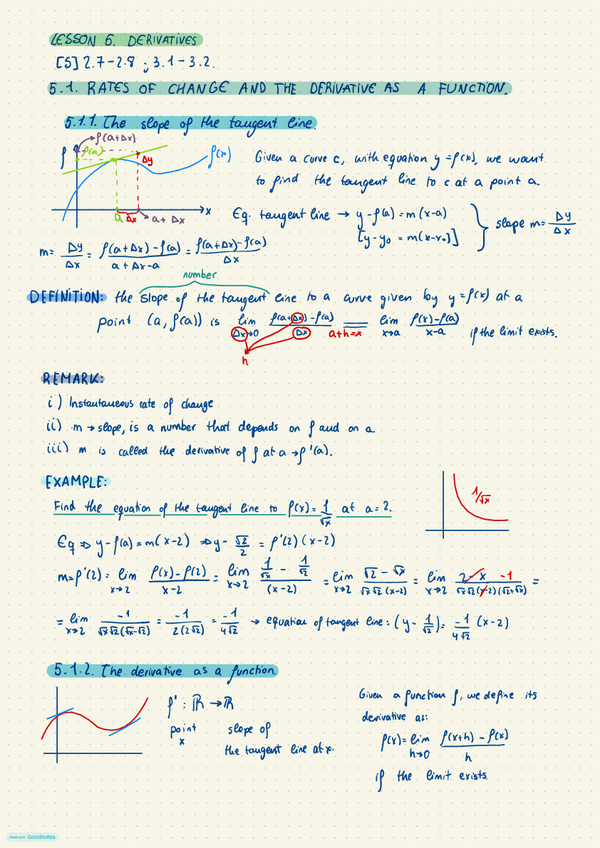 LESSON 5. DERIVATIVES
[S] 2.7-2.8 ; 3.1-3.2.
5.1. RATES OF CHANGE AND THE DERIVATIVE AS A FUNCTION.
5.1.1. The slope of the tangent line.
f
f(a+Δx)
f(a)
Δy
f(x)
a Δx a+Δx x
Given a curve c, with equation y=f(x), we want
to find the tangent line to c at a point a.
Eq. tangent line → y-f(a)=m(x-a)
[y-y₀ = m(x-x₀)]
slope m= Δy/Δx
m= Δy/Δx = (f(a+Δx)-f(a))/(a+Δx-a) = (f(a+Δx)-f(a))/Δx
number
DEFINITION: the slope of the tangent line to a curve given by y=f(x) at a
point (a, f(a)) is lim Δx→0 (f(a+Δx)-f(a))/Δx = lim x→a (f(x)-f(a))/(x-a) if the limit exists.
a+h=x
h
REMARK:
i) Instantaneous rate of change
ii) m→slope, is a number that depends on f and on a
iii) m is called the derivative of f at a → f'(a).
EXAMPLE:
Find the equation of the tangent line to f(x)= 1/√x at a=2.
1/√x
Eq ⇒ y-f(a)=m(x-2) ⇒ y- √2/2 = f'(2)(x-2)
m=f'(2)= lim x→2 (f(x)-f(2))/(x-2) = lim x→2 (1/√x - 1/√2)/(x-2) = lim x→2 (√2-√x)/(√x√2(x-2)) = lim x→2 (2-x -1)/(√x√2(x-2)(√2+√x)) =
= lim x→2 -1/(√x√2(√x-√2)) = -1/(2(2√2)) = -1/(4√2) → equation of tangent line: (y- 1/√2)= -1/(4√2) (x-2)
5.1.2. The derivative as a function
f' : ℝ → ℝ
point slope of
x the tangent line at x.
Given a function f, we define its
derivative as:
f(x)= lim h→0 (f(x+h)-f(x))/h
if the limit exists.
Made with Goodnotes